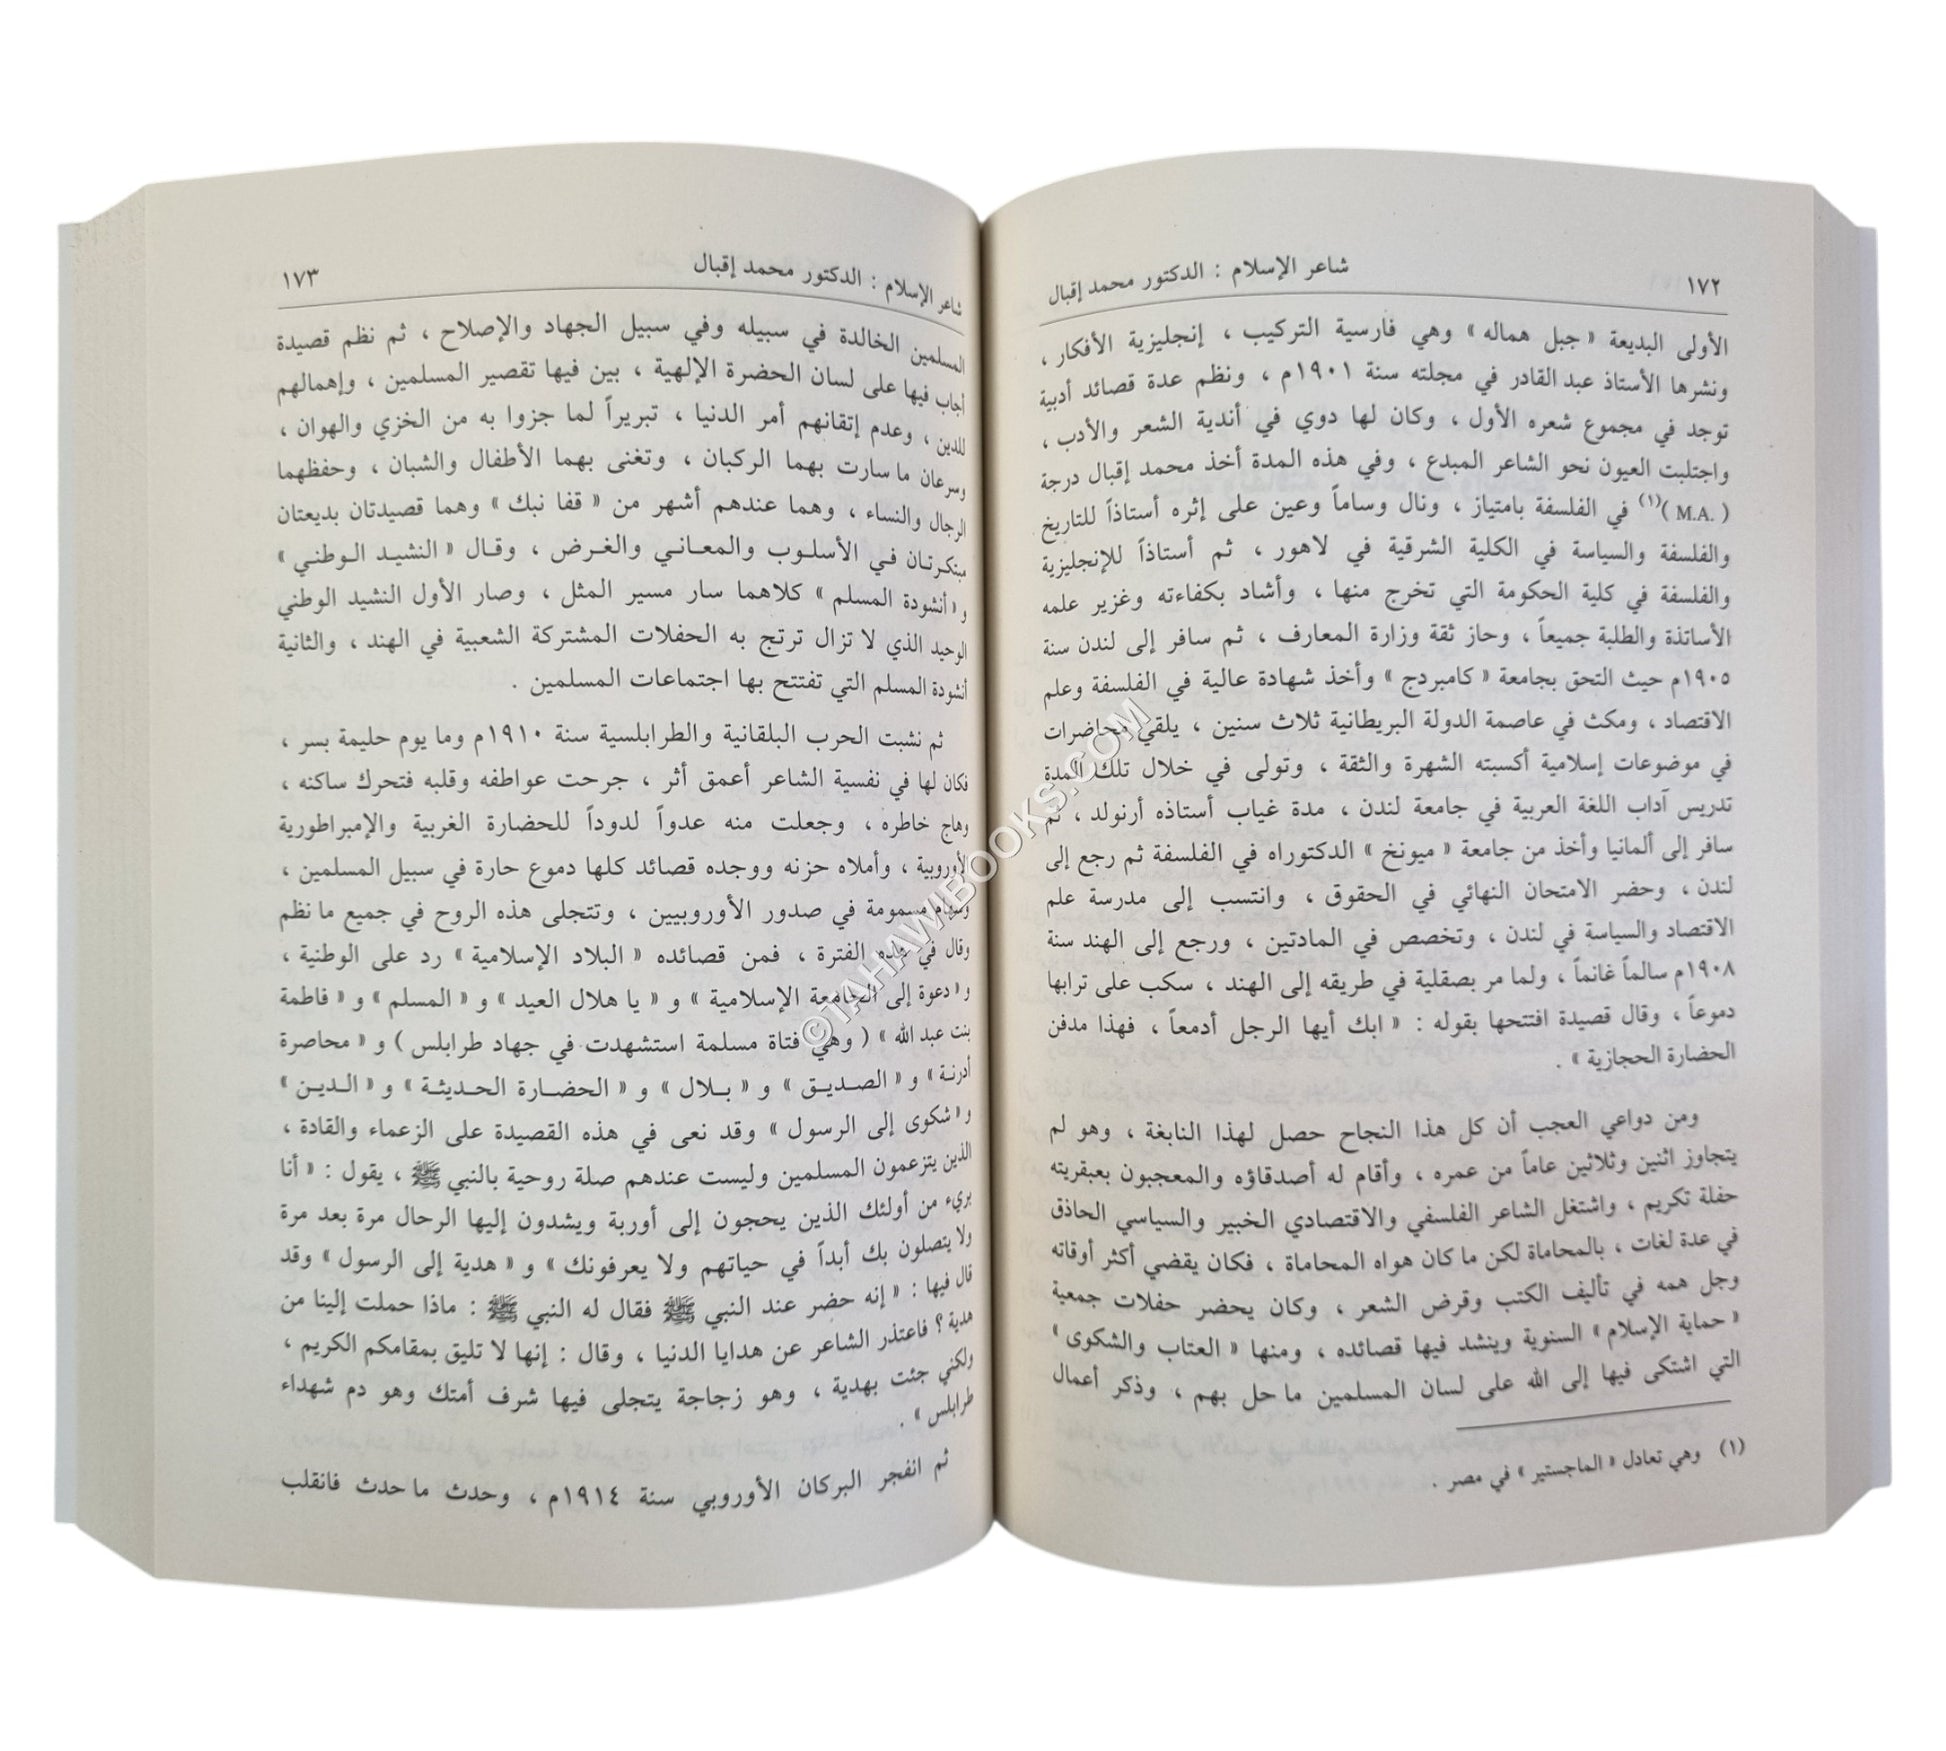 ١٧٢
شاعر الإسلام : الدكتور محمد إقبال
الأولى البديعة « جبل هماله » وهي فارسية التركيب ، إنجليزية الأفكار ،
ونشرها الأستاذ عبد القادر في مجلته سنة ١٩٠١م ، ونظم عدة قصائد أدبية
توجد في مجموع شعره الأول ، وكان لها دوي في أندية الشعر والأدب ،
واجتلبت العيون نحو الشاعر المبدع ، وفي هذه المدة أخذ محمد إقبال درجة
( M.A. )(١) في الفلسفة بامتياز ، ونال وساماً وعين على إثره أستاذاً للتاريخ
والفلسفة والسياسة في الكلية الشرقية في لاهور ، ثم أستاذاً للإنجليزية
والفلسفة في كلية الحكومة التي تخرج منها ، وأشاد بكفاءته وغزير علمه
الأساتذة والطلبة جميعاً ، وحاز ثقة وزارة المعارف ، ثم سافر إلى لندن سنة
١٩٠٥م حيث التحق بجامعة « كامبردج » وأخذ شهادة عالية في الفلسفة وعلم
الاقتصاد ، ومكث في عاصمة الدولة البريطانية ثلاث سنين ، يلقي محاضرات
في موضوعات إسلامية أكسبته الشهرة والثقة ، وتولى في خلال تلك المدة
تدريس آداب اللغة العربية في جامعة لندن ، مدة غياب أستاذه أرنولد ، ثم
سافر إلى ألمانيا وأخذ من جامعة « ميونخ » الدكتوراه في الفلسفة ثم رجع إلى
لندن ، وحضر الامتحان النهائي في الحقوق ، وانتسب إلى مدرسة علم
الاقتصاد والسياسة في لندن ، وتخصص في المادتين ، ورجع إلى الهند سنة
١٩٠٨م سالماً غانماً ، ولما مر بصقلية في طريقه إلى الهند ، سكب على ترابها
دموعاً ، وقال قصيدة افتتحها بقوله : « ابك أيها الرجل أدمعاً ، فهذا مدفن
الحضارة الحجازية » .
ومن دواعي العجب أن كل هذا النجاح حصل لهذا النابغة ، وهو لم
يتجاوز اثنين وثلاثين عاماً من عمره ، وأقام له أصدقاؤه والمعجبون بعبقريته
حفلة تكريم ، واشتغل الشاعر الفلسفي والاقتصادي الخبير والسياسي الحاذق
في عدة لغات ، بالمحاماة لكن ما كان هواه المحاماة ، فكان يقضي أكثر أوقاته
وجل همه في تأليف الكتب وقرض الشعر ، وكان يحضر حفلات جمعية
« حماية الإسلام » السنوية وينشد فيها قصائده ، ومنها « العتاب والشكوى »
التي اشتكى فيها إلى الله على لسان المسلمين ما حل بهم ، وذكر أعمال
(١) وهي تعادل « الماجستير » في مصر .
شاعر الإسلام : الدكتور محمد إقبال
١٧٣
المسلمين الخالدة في سبيله وفي سبيل الجهاد والإصلاح ، ثم نظم قصيدة
أجاب فيها على لسان الحضرة الإلهية ، بين فيها تقصير المسلمين ، وإهمالهم
للدين ، وعدم إتقانهم أمر الدنيا ، تبريراً لما جزوا به من الخزي والهوان ،
وسرعان ما سارت بهما الركبان ، وتغنى بهما الأطفال والشبان ، وحفظهما
الرجال والنساء ، وهما عندهم أشهر من « قفا نبك » وهما قصيدتان بديعتان
مبتكرتان في الأسلوب والمعاني والغرض ، وقال « النشيد الوطني »
و« أنشودة المسلم » كلاهما سار مسير المثل ، وصار الأول النشيد الوطني
الوحيد الذي لا تزال ترتج به الحفلات المشتركة الشعبية في الهند ، والثانية
أنشودة المسلم التي تفتتح بها اجتماعات المسلمين .
ثم نشبت الحرب البلقانية والطرابلسية سنة ١٩١٠م وما يوم حليمة بسر ،
فكان لها في نفسية الشاعر أعمق أثر ، جرحت عواطفه وقلبه فتحرك ساكنه ،
وهاج خاطره ، وجعلت منه عدواً لدوداً للحضارة الغربية والإمبراطورية
الأوروبية ، وأملاه حزنه ووجده قصائد كلها دموع حارة في سبيل المسلمين ،
وسهام مسمومة في صدور الأوروبيين ، وتتجلى هذه الروح في جميع ما نظم
وقال في هذه الفترة ، فمن قصائده « البلاد الإسلامية » رد على الوطنية ،
و« دعوة إلى الجامعة الإسلامية » و « يا هلال العيد » و « المسلم » و « فاطمة
بنت عبد الله » ( وهي فتاة مسلمة استشهدت في جهاد طرابلس ) و « محاصرة
أدرنة » و « الصديق » و « بلال » و « الحضارة الحديثة » و « الدين »
و« شكوى إلى الرسول » وقد نعى في هذه القصيدة على الزعماء والقادة ،
الذين يتزعمون المسلمين وليست عندهم صلة روحية بالنبي ﷺ ، يقول : « أنا
بريء من أولئك الذين يحجون إلى أوربة ويشدون إليها الرحال مرة بعد مرة
ولا يتصلون بك أبداً في حياتهم ولا يعرفونك » و « هدية إلى الرسول » وقد
قال فيها : « إنه حضر عند النبي ﷺ فقال له النبي ﷺ : ماذا حملت إلينا من
هدية ؟ فاعتذر الشاعر عن هدايا الدنيا ، وقال : إنها لا تليق بمقامكم الكريم ،
ولكني جئت بهدية ، وهو زجاجة يتجلى فيها شرف أمتك وهو دم شهداء
طرابلس » .
ثم انفجر البركان الأوروبي سنة ١٩١٤م ، وحدث ما حدث فانقلب
©TAHAWIBOOKS.COM